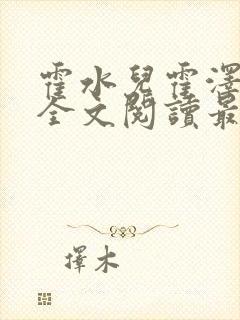 霍水兒霍澤
全文閱讀最
擇木